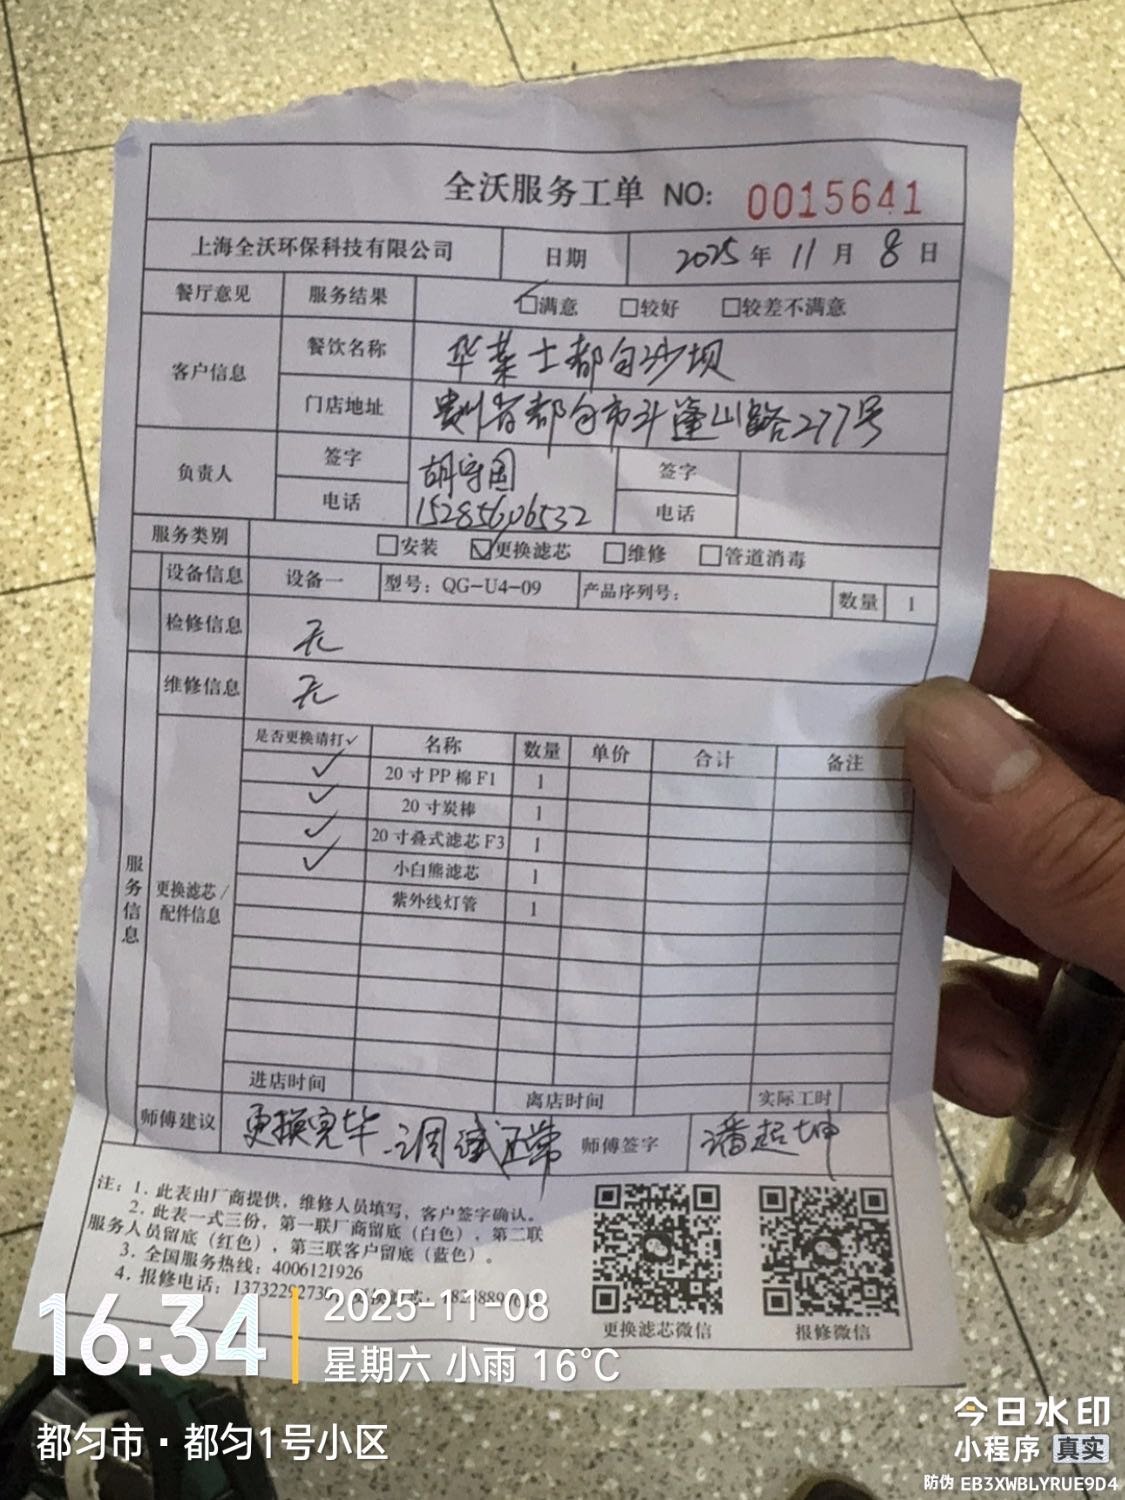 全沃服务工单 NO: 0015641
上海全沃环保科技有限公司 日期 2025年11月8日
餐厅意见 服务结果 ☑满意 □较好 □较差不满意
客户信息 餐饮名称 华莱士都匀沙坝
门店地址 贵州省都匀市斗篷山路277号
负责人 签字 胡守国 签字
电话 15285606532 电话
服务类别 □安装 ☑更换滤芯 □维修 □管道消毒
设备信息 设备一 型号：QG-U4-09 产品序列号： 数量 1
检修信息 无
维修信息 无
服务信息
更换滤芯/
配件信息
是否更换请打✓ 名称 数量 单价 合计 备注
✓ 20寸PP棉F1 1
✓ 20寸炭棒 1
✓ 20寸叠式滤芯F3 1
✓ 小白熊滤芯 1
紫外线灯管 1
进店时间 离店时间 实际工时
师傅建议 更换完毕、调试正常 师傅签字 潘起坤
注：1. 此表由厂商提供，维修人员填写，客户签字确认。
2. 此表一式三份，第一联厂商留底（白色），第二联
服务人员留底（红色），第三联客户留底（蓝色）。
3. 全国服务热线：4006121926
4. 报修电话：
更换滤芯微信 报修微信
16:34
2025-11-08
星期六 小雨 16°C
都匀市·都匀1号小区
今日水印
小程序 真实
防伪 EB3XWBLYRUE9D4